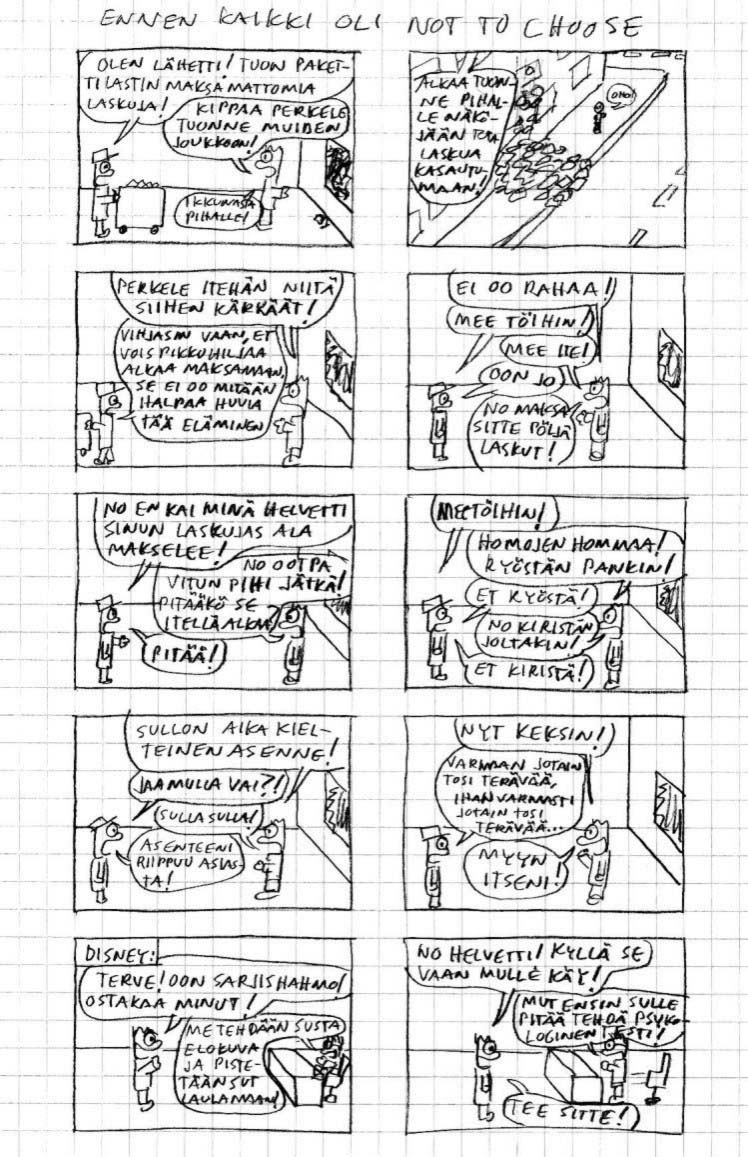 ENNEN KAIKKI OLI NOT TO CHOOSE
OLEN LÄHETTI! TUON PAKET-
TILASTIN MAKSAMATTOMIA
LASKUJA!
KIPPAA PERKELE
TUONNE MUIDEN
JOUKKOON!
IKKUNASTA
PIHALLE!
ALKAA TUON-
NE PIHAL-
LE NÄKÖ-
JÄÄN TOTA
LASKUA
KASAUTU-
MAAN!
OHO!
PERKELE ITEHÄN NIITÄ
SIIHEN KÄRKÄÄT!
VIHJASIN VAAN, ET
VOIS PIKKUHILJAA
ALKAA MAKSAMAAN.
SE EI OO MITÄÄN
HALPAA HUVIA
TÄÄ ELÄMINEN
EI OO RAHAA!
MEE TÖIHIN!
MEE ITE!
OON JO
NO MAKSA
SITTE PÖLJÄ
LASKUT!
NO EN KAI MINÄ HELVETTI
SINUN LASKUJAS ALA
MAKSELEE!
NO OOTPA
VITUN PIHI JÄTKÄ!
PITÄÄKÖ SE
ITELLÄ ALKAA
PITÄÄ!
MEE TÖIHIN!
HOMOJEN HOMMAA!
RYÖSTÄN PANKIN!
ET RYÖSTÄ!
NO KIRISTÄN
JOLTAKIN!
ET KIRISTÄ!
SULLON AIKA KIEL-
TEINEN ASENNE!
JAA MULLA VAI?!
SULLA SULLA!
ASENTEENI
RIIPPUU ASIAS-
TA!
NYT KEKSIN!
VARMAAN JOTAIN
TOSI TERÄVÄÄ,
IHAN VARMASTI
JOTAIN TOSI
TERÄVÄÄ...
MYYN
ITSENI!
DISNEY:
TERVE! OON SARJISHAHMO!
OSTAKAA MINUT!
ME TEHDÄÄN SUSTA
ELOKUVA
JA PISTE-
TÄÄN SUT
LAULAMAAN!
NO HELVETTI! KYLLÄ SE
VAAN MULLE KÄY!
MUT ENSIN SULLE
PITÄÄ TEHDÄ PSYKO-
LOGINEN TESTI!
TEE SITTE!